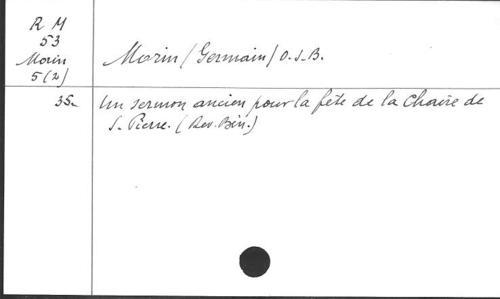 R M
53
Morin
5(2)
Morin (Germain) O.S.B.
35.
Un sermon ancien pour la fête de la Chaire de
S. Pierre. (Rev. Bén.)